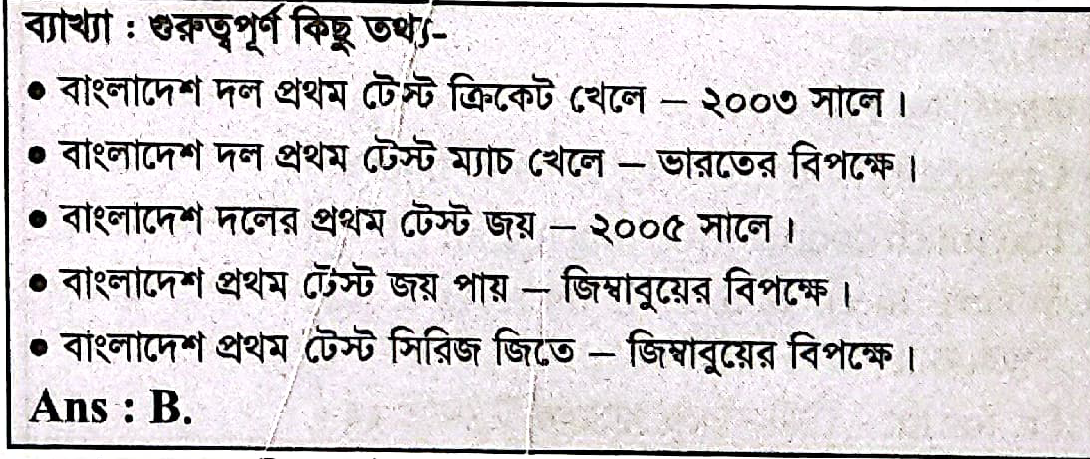 ব্যাখ্যা : গুরুত্বপূর্ণ কিছু তথ্য-
• বাংলাদেশ দল প্রথম টেস্ট ক্রিকেট খেলে – ২০০৩ সালে।
• বাংলাদেশ দল প্রথম টেস্ট ম্যাচ খেলে – ভারতের বিপক্ষে।
• বাংলাদেশ দলের প্রথম টেস্ট জয় – ২০০৫ সালে।
• বাংলাদেশ প্রথম টেস্ট জয় পায় – জিম্বাবুয়ের বিপক্ষে।
• বাংলাদেশ প্রথম টেস্ট সিরিজ জিতে – জিম্বাবুয়ের বিপক্ষে।
Ans : B.